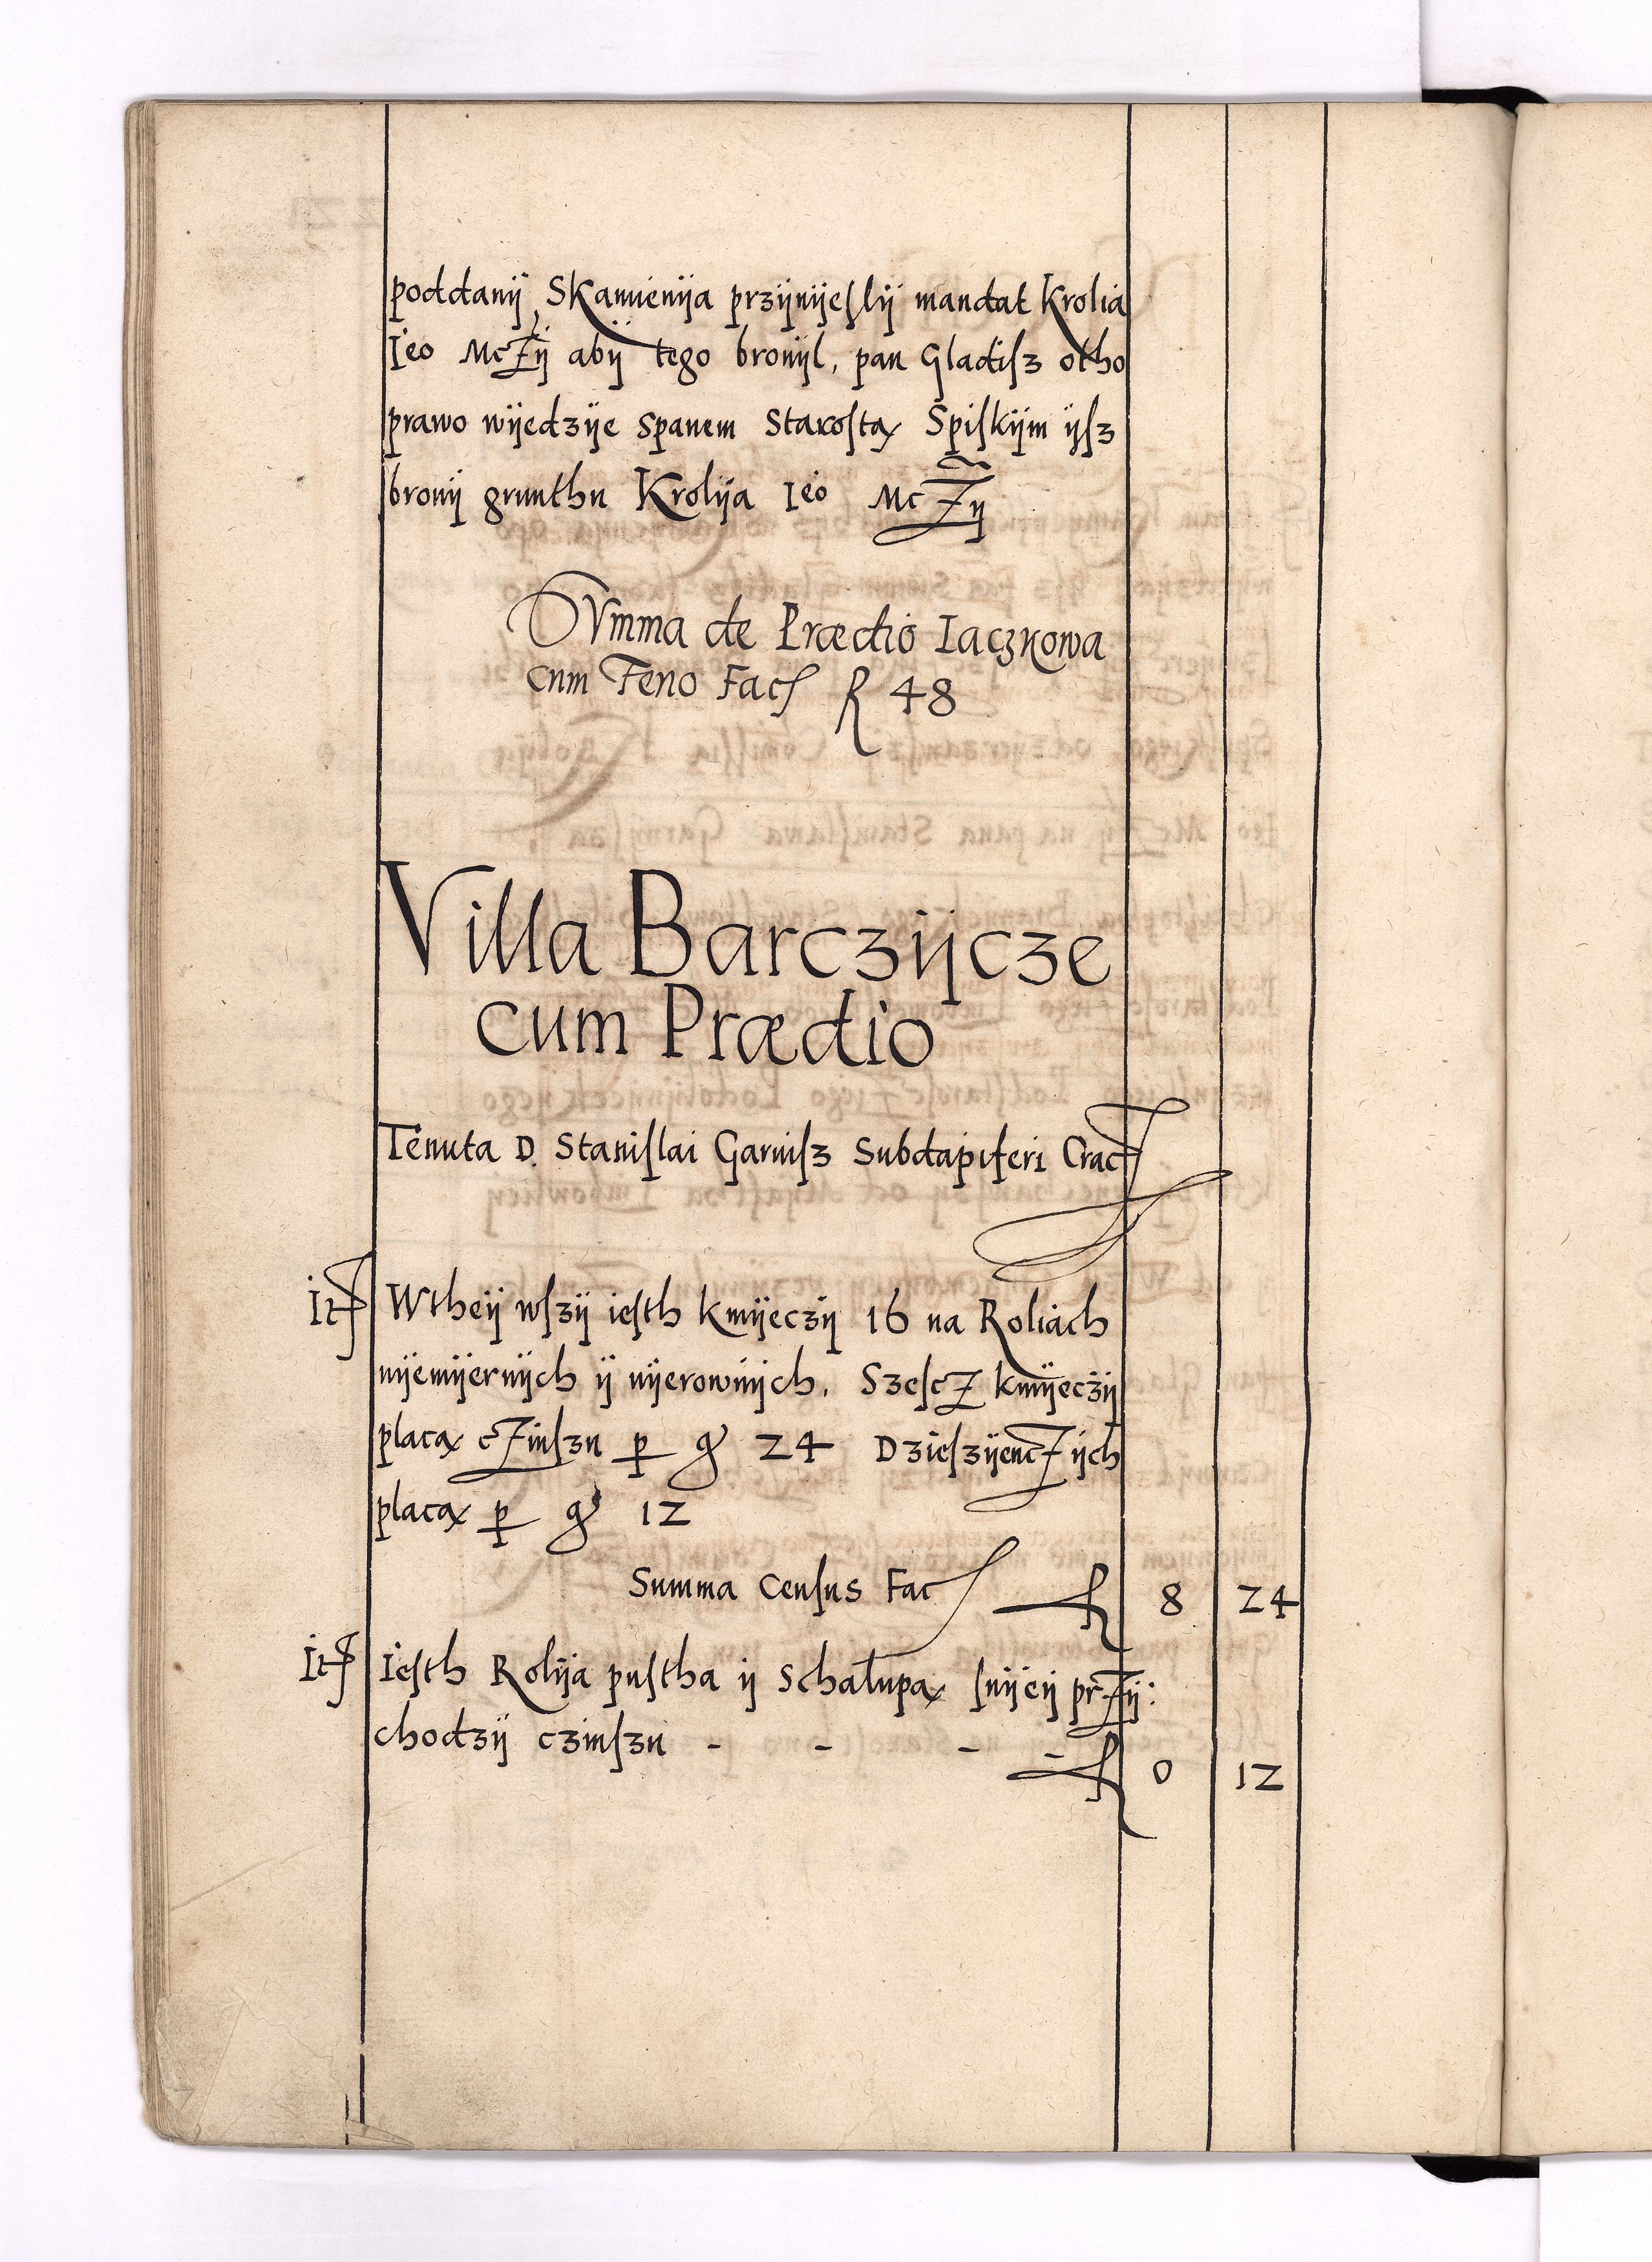 poddanÿ Skamienÿa przÿnÿeslÿ mandat Krolia
Ieo Mczÿ abÿ tego bronÿl, pan Gladisz otho
prawo wÿedzÿe spanem Starostą Spiskÿm ÿsz
bronÿ grunthu Krolÿa Ieo Mczÿ
Svmma de Prædio Iaczkowa
cum Feno Fac R 48
Villa Barczÿcze
cum Prædio
Tenuta D. Stanislai Garnisz Subdapiferi Crac
It Wtheÿ wszÿ iesth kmÿeczÿ 16 na Roliach
nÿemÿernÿch ÿ nÿerownÿch. Szescz kmÿeczÿ
placą czinszu p g 24 Dzieszÿenczÿch
placą p g 12
Summa Census Fac R 8 24
It Iesth Rolÿa pustha ÿ Schałupą snÿeÿ przÿ:
chodzÿ czinszu - - - - R 0 12